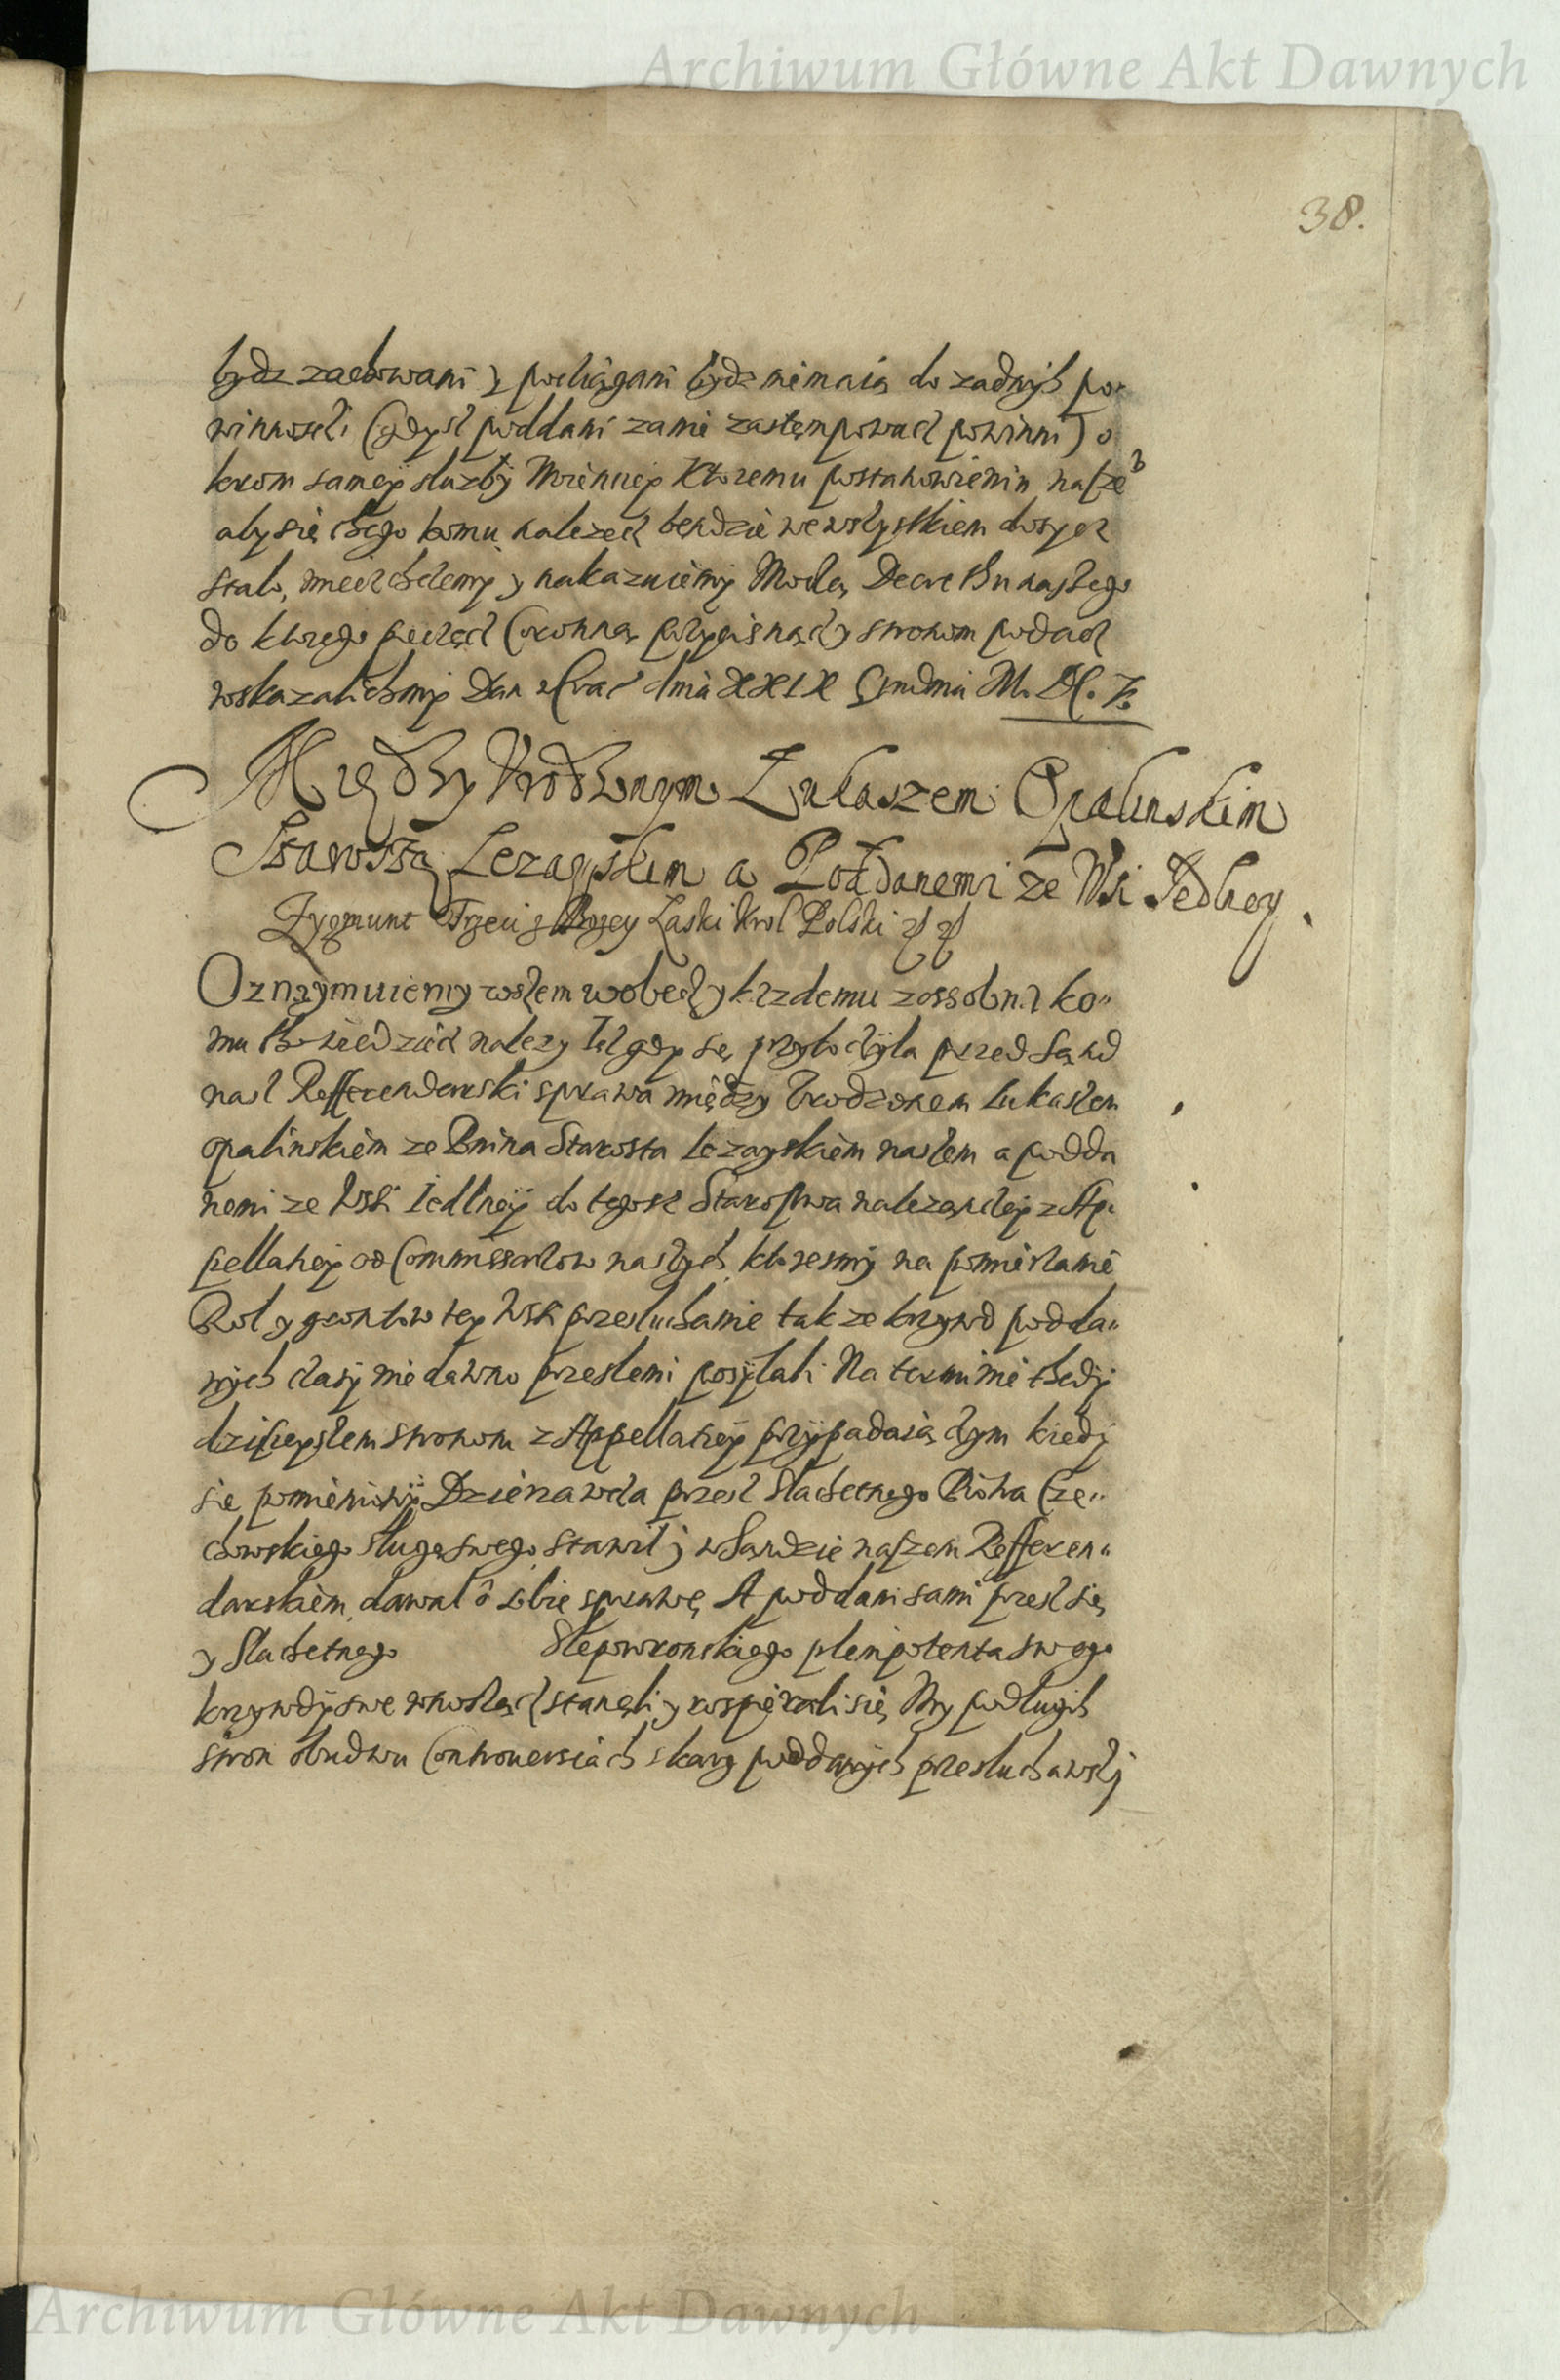 Archiwum Główne Akt Dawnych
38.
bydz zachowani y pociągani bydz niemaią do zadnÿch po-
winnosci (gdysz poddani zanie zastempowacz powinni) o
krom sameÿ sluzbÿ Woienneÿ Ktoremu postanowieniu nasze
aby się thego komu nalezecz będzie we wszystkiem dosycz
stalo, miecz chcemy y nakazuiemÿ Moczą Decrethu naszego
do ktorego pieczęcz Coronną przycisnącz y stronom podacz
wskazalichmÿ Dan w Crac dnia XXIX Grudnia
Między Urodzonym Łukaszem Opalinskim
Starostą Lezayskim a Poddanemi ze Wsi Jedlney.
Zygmunt Trzeci z Bozey Łaski Krol Polski
Oznaymuiemy wszem wobecz y kazdemu zossobna ko-
mu tho wiedziecz nalezy Isz gdy się przytoczÿla przed Sąnd
nasz Refferendarski sprawa między Urodzonem Lukaszem
opalinskiem ze Bnina Starosta lezayskiem naszem a podda
nemi ze Wsi Iedlneÿ do tegosz Starostwa nalezączeÿ z Ap-
pellatieÿ od Commissarzow naszych, ktoresmÿ na pomierzanie
Rol y grontow teÿ Wsi przesluchanie takze krzywd podda-
nÿch czasÿ niedawno przeszlemi posÿlali Na terminie thedÿ
dzisieÿszem stronom z Appellatieÿ przÿpadaiączym kiedÿ
się pomieniony Dzierzawcza przesz Slachetnego Piotra Cze-
chowskiego sługę swego stawil y w Sąndzie naszem Refferen-
darskiem dawal o sobie sprawę A poddani sami przesz się
y Slachetnego Slepowronskiego plenipotenta swego
krzywdÿ swe wnosząc stanęli y rospierali się My podlugich
stron obudwu Controuersiach skarg poddanÿch przesluchawszÿ
Archiwum Główne Akt Dawnych